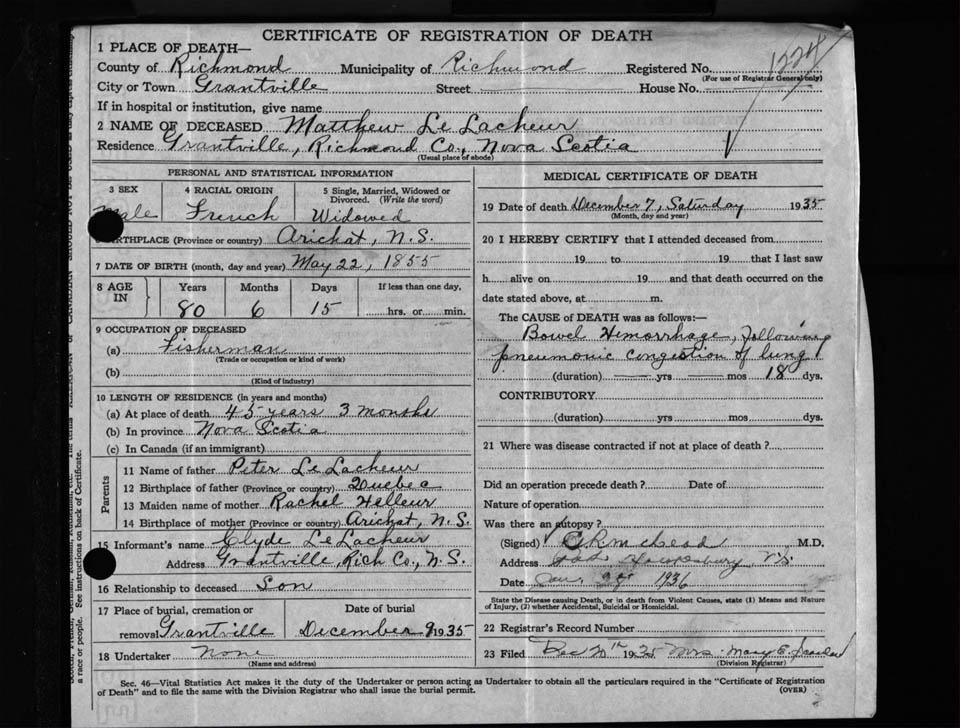 CERTIFICATE OF REGISTRATION OF DEATH
1 PLACE OF DEATH—
County of Richmond Municipality of Richmond Registered No. 1224
(For use of Registrar General only)
City or Town Grantville Street House No.
If in hospital or institution, give name
2 NAME OF DECEASED Matthew Le Lacheur
Residence Grantville, Richmond Co., Nova Scotia
(Usual place of abode)
PERSONAL AND STATISTICAL INFORMATION
3 SEX 4 RACIAL ORIGIN 5 Single, Married, Widowed or
Divorced. (Write the word)
Male French Widowed
BIRTHPLACE (Province or country) Arichat, N.S.
7 DATE OF BIRTH (month, day and year) May 22, 1855
8 AGE IN Years Months Days If less than one day,
80 6 15 hrs. or min.
9 OCCUPATION OF DECEASED
(a) Fisherman
(Trade or occupation or kind of work)
(b)
(Kind of industry)
10 LENGTH OF RESIDENCE (in years and months)
(a) At place of death 45 years 3 months
(b) In province Nova Scotia
(c) In Canada (if an immigrant)
Parents
11 Name of father Peter Le Lacheur
12 Birthplace of father (Province or country) Quebec
13 Maiden name of mother Rachel Helleur
14 Birthplace of mother (Province or country) Arichat, N.S.
15 Informant's name Clyde Le Lacheur
Address Grantville, Rich Co., N.S.
16 Relationship to deceased Son
17 Place of burial, cremation or Date of burial
removal Grantville December 9 1935
18 Undertaker None
(Name and address)
MEDICAL CERTIFICATE OF DEATH
19 Date of death December 7, Saturday 1935
(Month, day and year)
20 I HEREBY CERTIFY that I attended deceased from
19 to 19 that I last saw
h alive on 19 and that death occurred on the
date stated above, at m.
The CAUSE of DEATH was as follows:—
Bowel Hemorrhage, following
pneumonic congestion of lung
(duration) yrs mos 18 dys.
CONTRIBUTORY
(duration) yrs mos dys.
21 Where was disease contracted if not at place of death ?
Did an operation precede death ? Date of
Nature of operation
Was there an autopsy ?
(Signed) M.D.
Address Hawkesbury N.S.
Date Jan 1936
State the Disease causing Death, or in death from Violent Causes, state (1) Means and Nature
of Injury, (2) whether Accidental, Suicidal or Homicidal.
22 Registrar's Record Number
23 Filed Dec 20th 1935 Mrs. Mary E.
(Division Registrar)
Sec. 46—Vital Statistics Act makes it the duty of the Undertaker or person acting as Undertaker to obtain all the particulars required in the "Certificate of Registration
of Death" and to file the same with the Division Registrar who shall issue the burial permit.
(OVER)
a race or people. See instructions on back of Certificate.